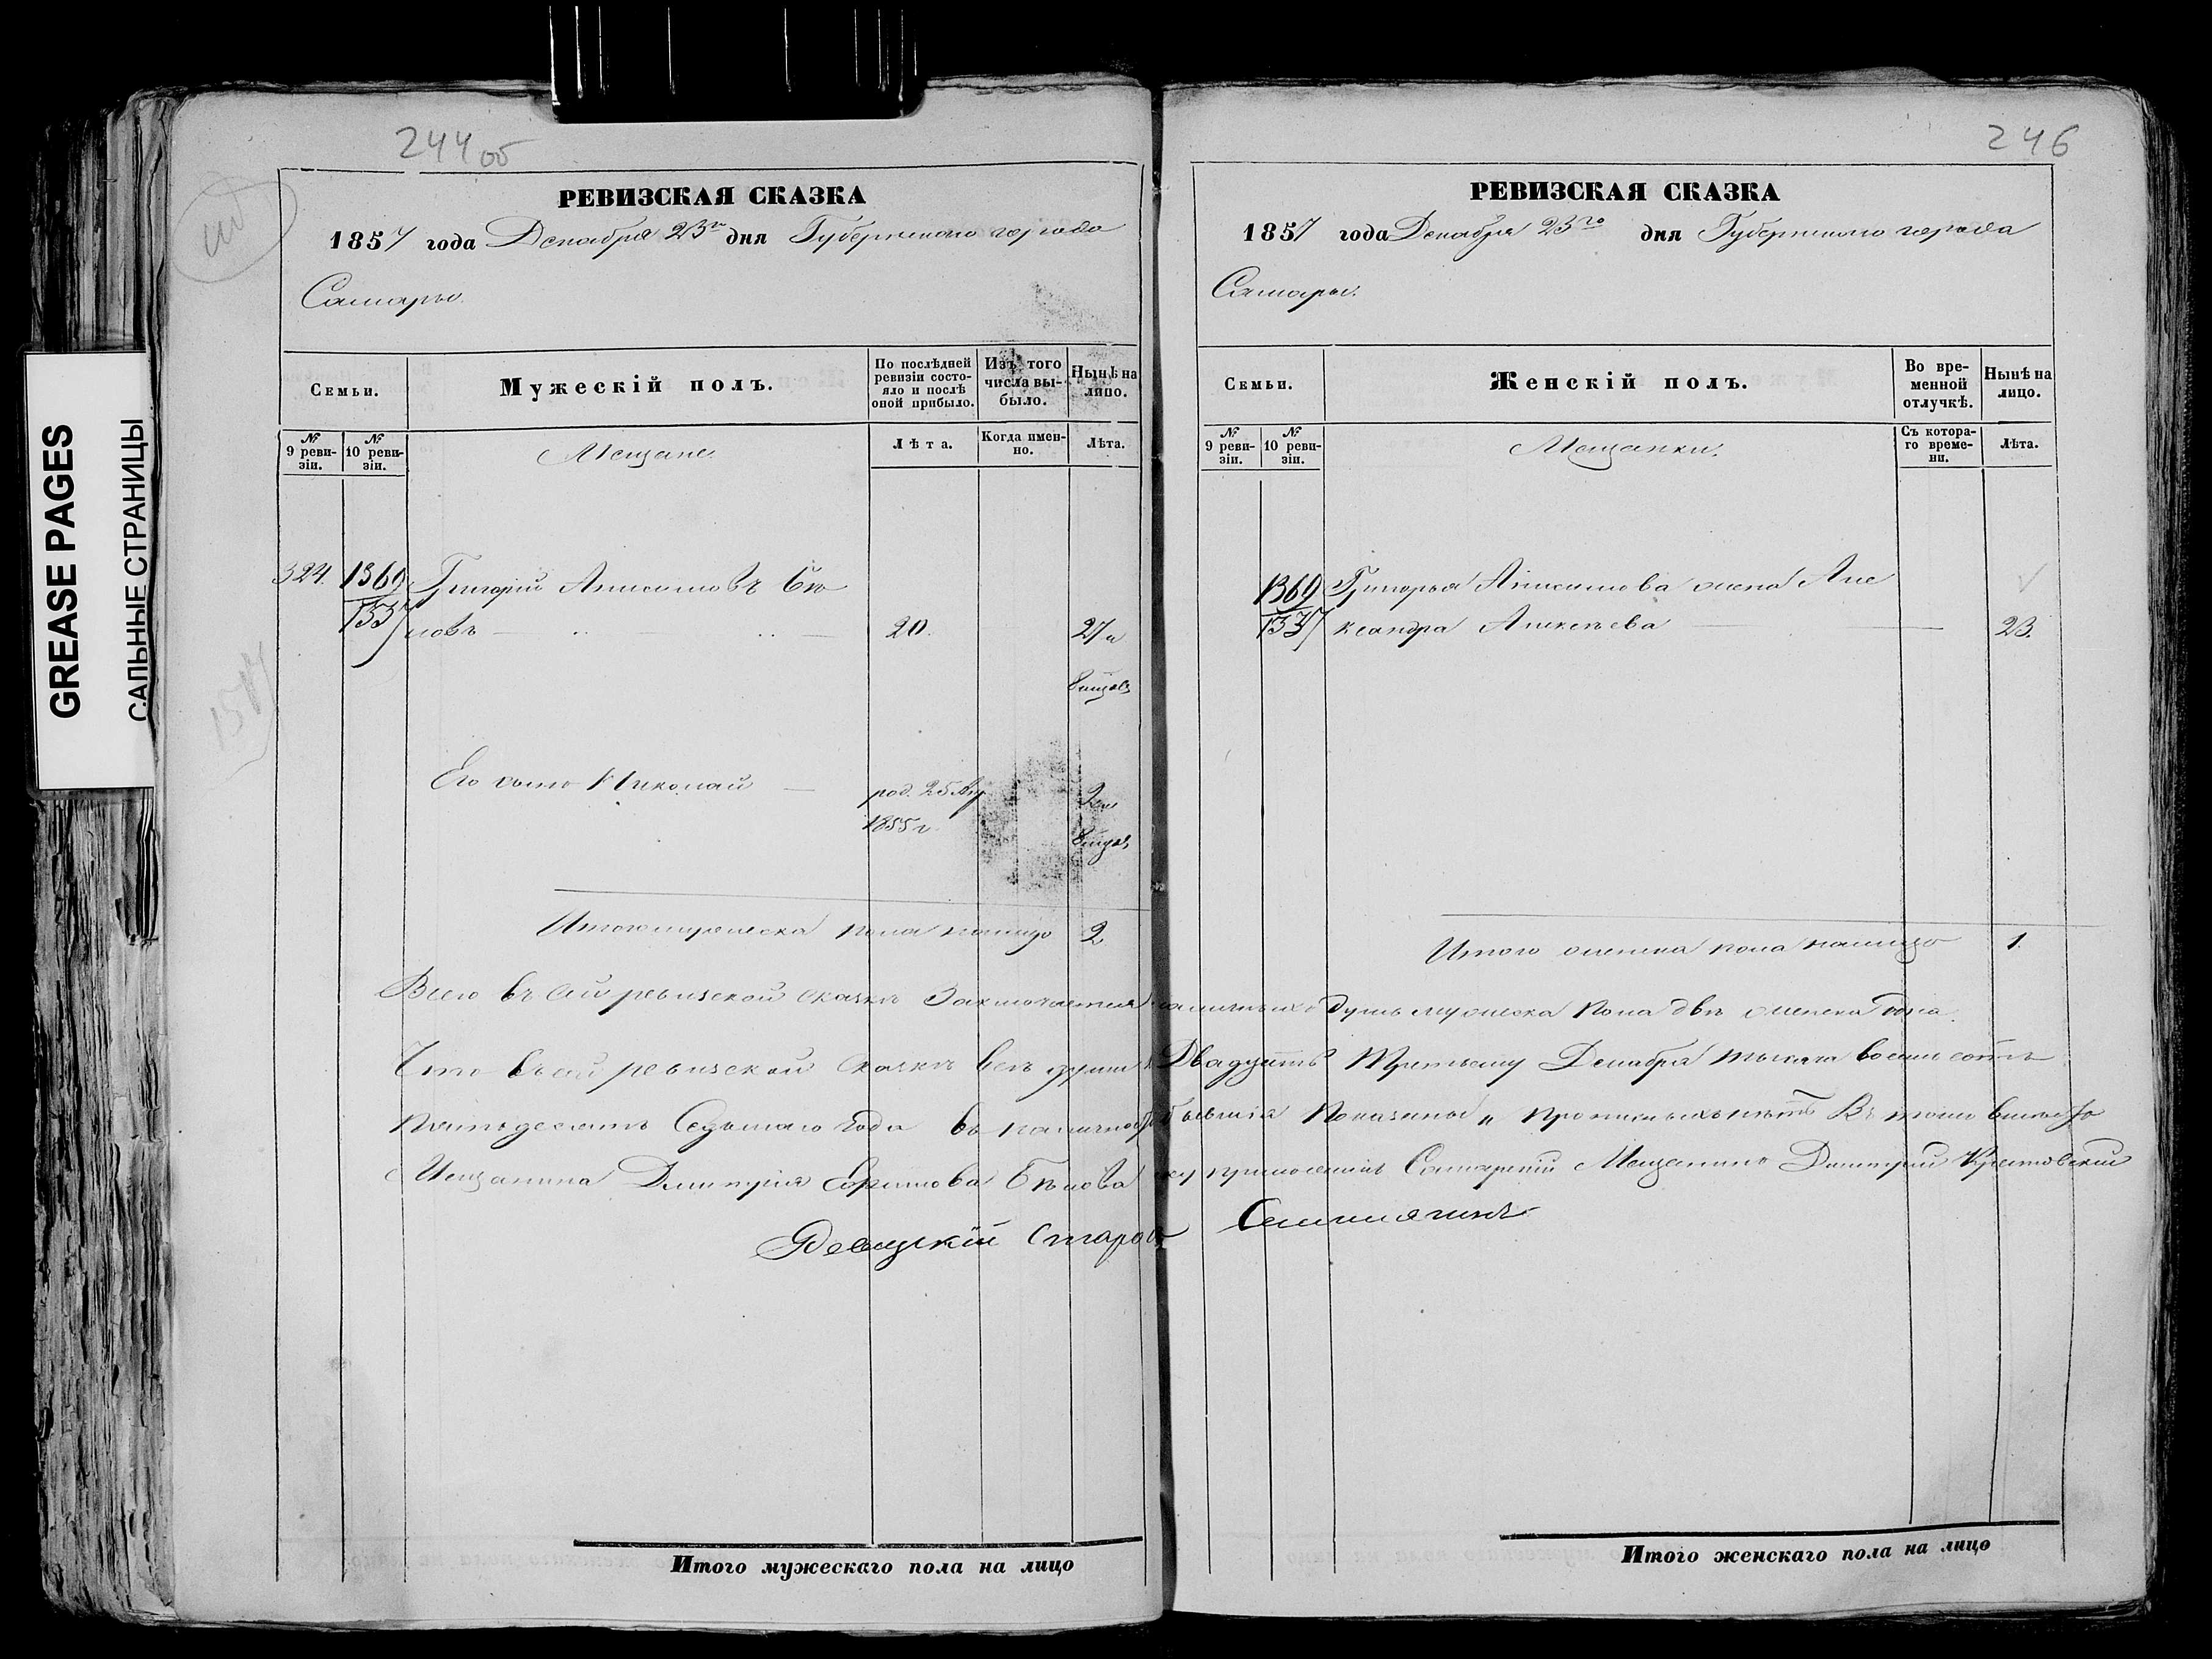 GREASE PAGES
САЛЬНЫЕ СТРАНИЦЫ
244 об
РЕВИЗСКАЯ СКАЗКА
1857 года Декабря 23го дня Губернскаго города
Самары.
Семьи.
Мужескій полъ.
По послѣдней ревизіи состояло и послѣ оной прибыло.
Изъ того числа выбыло.
Нынѣ на лицо.
№ 9 ревизіи.
№ 10 ревизіи.
Мещане.
Лѣта.
Когда именно.
Лѣта.
324. 1369 Григорій Анисимовъ Бѣ
1537 ловъ 20. 27 и
8 мцовъ
Его сынъ Николай род. 25 Авг 2 и
1855 г. 8 мцовъ
Итого мужеска пола налицо 2
Итого мужескаго пола на лицо
246
РЕВИЗСКАЯ СКАЗКА
1857 года Декабря 23го дня Губернскаго города
Самары.
Семьи.
Женскій полъ.
Во временной отлучкѣ.
Нынѣ на лицо.
№ 9 ревизіи.
№ 10 ревизіи.
Мещанки.
Съ котораго времени.
Лѣта.
1369 Григорья Анисимова жена Але
1537 ксандра Алексѣева 23.
Итого женска пола налицо 1.
Всего въ сей ревизской сказкѣ заключается наличныхъ душъ мужеска пола двѣ женска одна.
Что въ сей ревизской сказкѣ всѣ души къ Двадцать Третьему Декабря тысяча восемь сотъ
пятьдесятъ Седьмаго года въ наличности бывшія показаны и прописныхъ нѣтъ Въ томъ вмѣсто
Мещанина Дмитрія Бѣлова Самарскій Мещанинъ Дмитрій
Итого женскаго пола на лицо